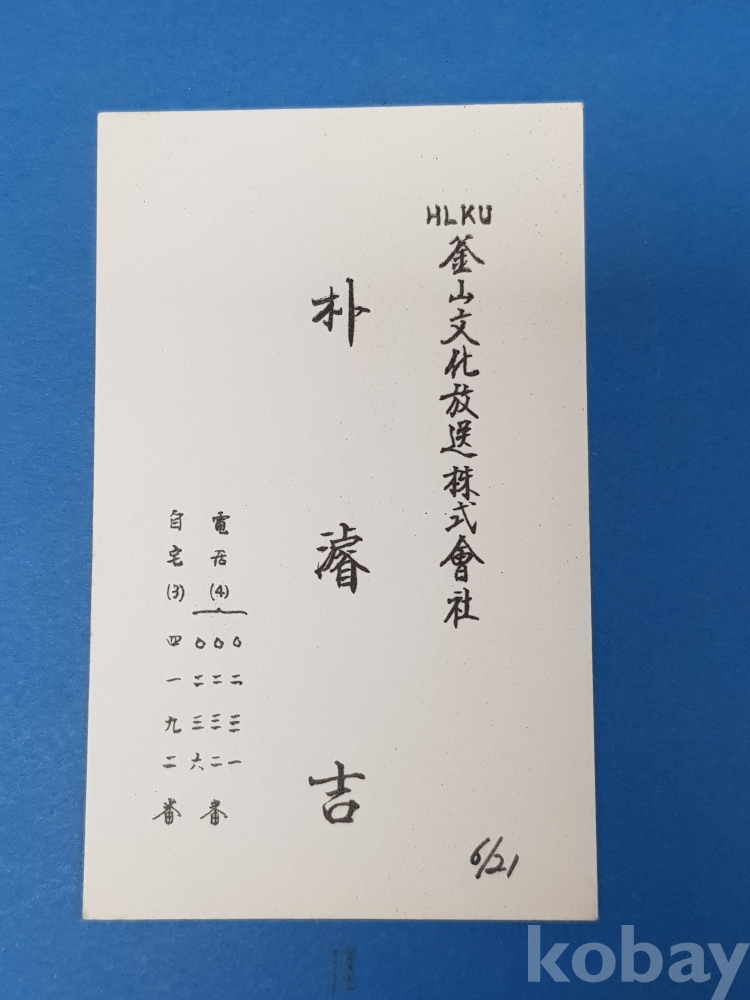 HLKU
釜山文化放送株式會社
朴濬吉
電話(4)
〇二三一
〇二三二
〇二三六
番
自宅(3)四一九二番
6/21
kobay